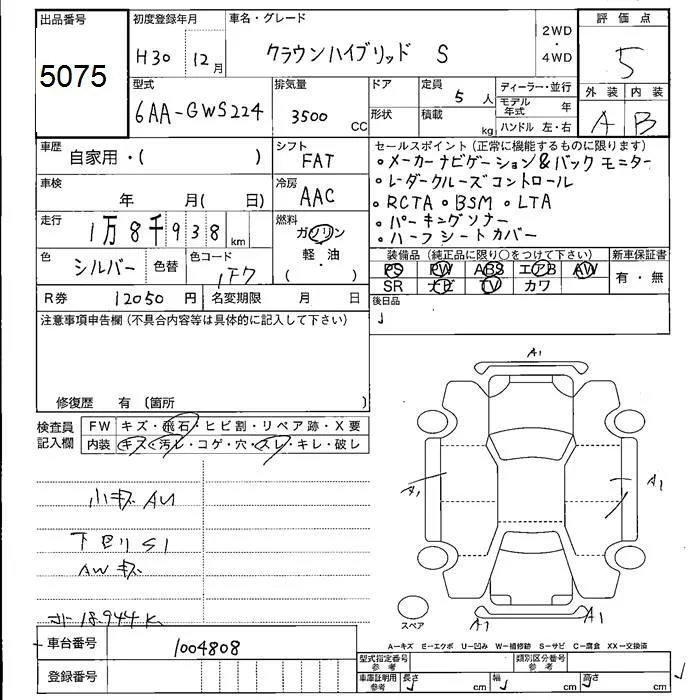 出品番号 初度登録年月 車名・グレード 2WD 評価点
5075 H30 12月 クラウンハイブリッド S ・ 5
4WD
型式 排気量 ドア 定員 ディーラー・並行 外装 内装
6AA-GWS224 3500 CC 5人 モデル年式 年 A B
形状 積載 kg ハンドル 左・右
車歴 自家用・( ) シフト FAT セールスポイント(正常に機能するものに限ります)
・メーカーナビゲーション&バックモニター
車検 年 月( 日) 冷房 AAC ・レーダークルーズコントロール
・RCTA・BSM・LTA
走行 1万8千938km 燃料 ガソリン ・パーキングソナー
軽・油 ・ハーフシートカバー
( )
色 シルバー 色替 色コード 1F7 装備品(純正品に限り○をつけて下さい) 新車保証書
PS PW ABS エアB AW 有・無
SR ナビ TV カワ
R券 12050円 名変期限 月 日 後日品
注意事項申告欄(不具合内容等は具体的に記入して下さい)
修復歴 有 〔箇所 〕
検査員記入欄 FW キズ・飛石・ヒビ割・リペア跡・X要
内装 キズ・汚レ・コゲ・穴・スレ・キレ・破し
A1
A1 A1
小キズAU
下回りS1
AWキズ
18,944K
スペア A1 A1
車台番号 1004808
A-キズ E-エクボ U-凹み W-補修跡 S-サビ C-腐食 XX-交換済
登録番号 型式指定番号 参考 類別区分番号 参考
車庫証明用 参考 長さ cm 幅 cm 高さ cm